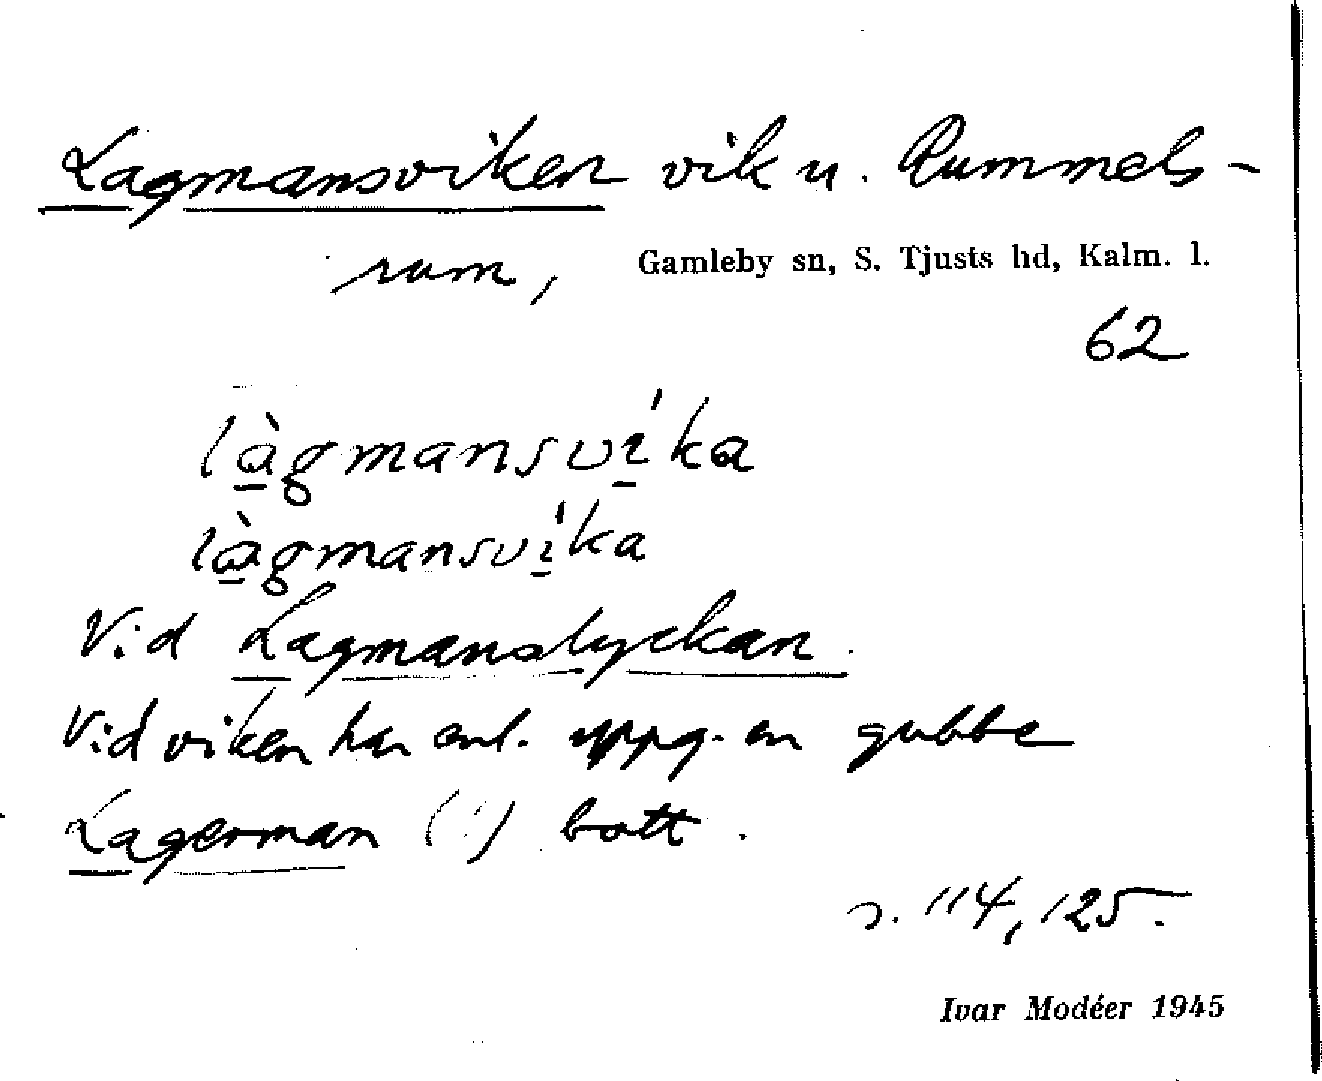 Lagmansviken vik u. Rummels-
rum, Gamleby sn, S. Tjusts hd, Kalm. l.
62
làgmansvíka
làgmansvíka
Vid Lagmanslyckan.
Vid viken har enl. uppg. en gubbe
Lagerman (!) bott.
s. 114, 125.
Ivar Modéer 1945